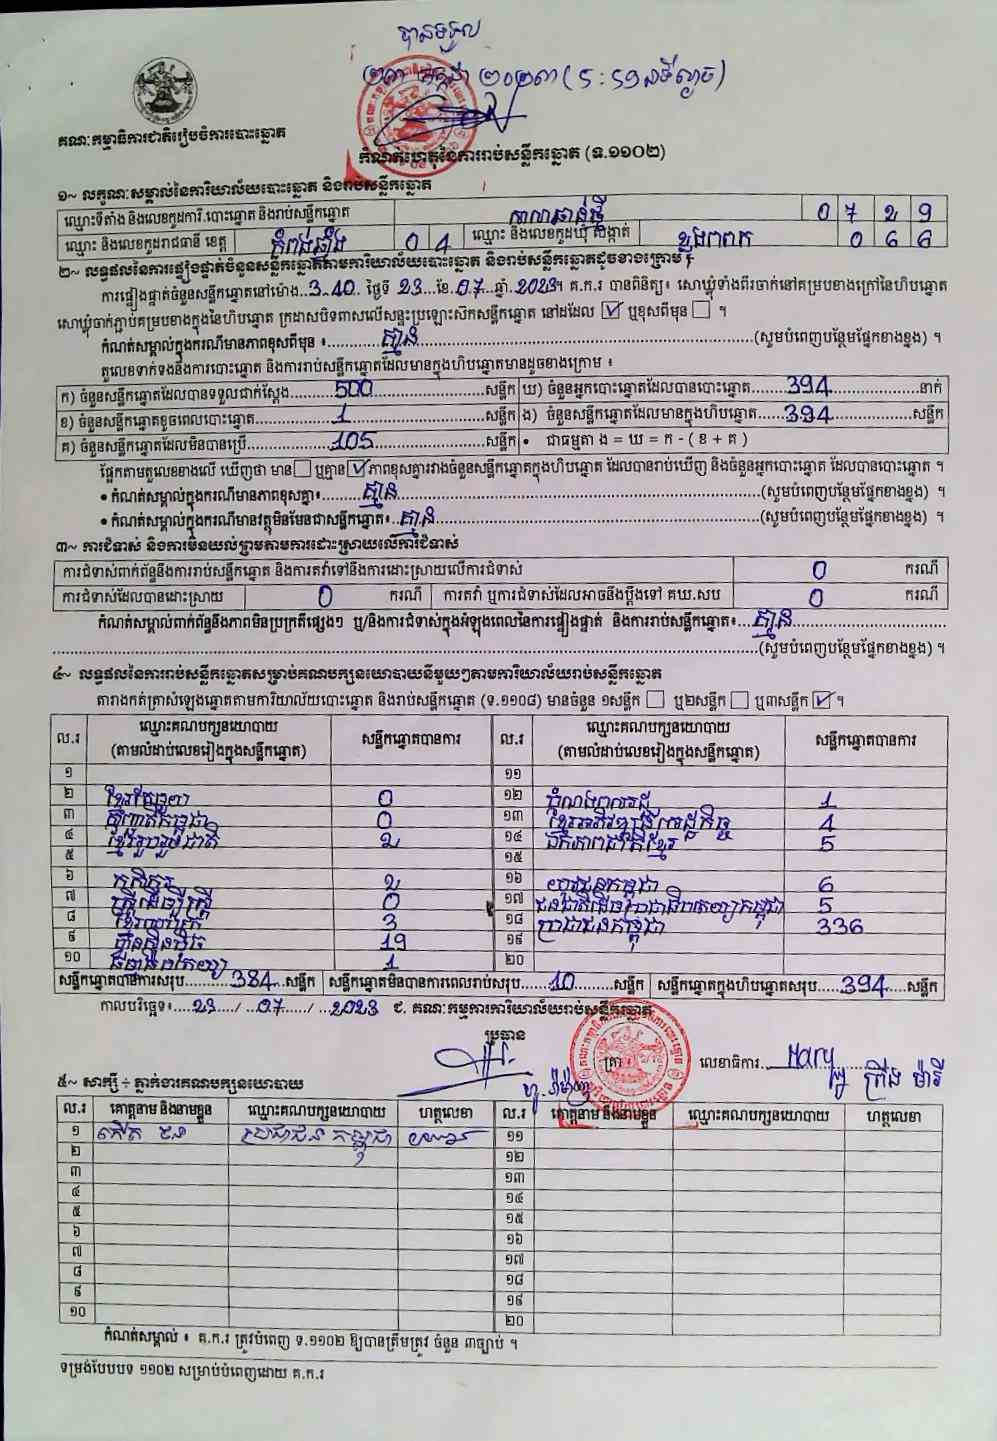 បានទទួល
២៣ កក្កដា ២០២៣ (5:59 នាទីល្ងាច)
គណៈកម្មាធិការជាតិរៀបចំការបោះឆ្នោត
កំណត់ហេតុនៃការរាប់សន្លឹកឆ្នោត (ទ.១១០២)
១~ លក្ខណៈសម្គាល់នៃការិយាល័យបោះឆ្នោត និងរាប់សន្លឹកឆ្នោត
ឈ្មោះទីតាំង និងលេខកូដការិ.បោះឆ្នោត និងរាប់សន្លឹកឆ្នោត 0 7 2 9
ឈ្មោះ និងលេខកូដរាជធានី ខេត្ត កំពង់ឆ្នាំង 0 4 ឈ្មោះ និងលេខកូដឃុំ សង្កាត់ 0 6 6
២~ លទ្ធផលនៃការផ្ទៀងផ្ទាត់ចំនួនសន្លឹកឆ្នោតតាមការិយាល័យបោះឆ្នោត និងរាប់សន្លឹកឆ្នោតដូចខាងក្រោម៖
ការផ្ទៀងផ្ទាត់ចំនួនសន្លឹកឆ្នោតនៅម៉ោង..3.40..ថ្ងៃទី 23..ខែ.07..ឆ្នាំ.2023។ គ.ក.រ បានពិនិត្យ៖ សោឃ្លុំទាំងពីរចាក់នៅគម្របខាងក្រៅនៃហិបឆ្នោត
សោឃ្លុំចាក់ភ្ជាប់គម្របខាងក្នុងនៃហិបឆ្នោត ក្រដាសបិទពាសលើសន្ទះប្រឡោះសឹកសន្លឹកឆ្នោត នៅដដែល ☑ ឬខុសពីមុន ☐ ។
កំណត់សម្គាល់ក្នុងករណីមានភាពខុសពីមុន ៖ គ្មាន (សូមបំពេញបន្ថែមផ្នែកខាងខ្នង) ។
តួលេខទាក់ទងនឹងការបោះឆ្នោត និងការរាប់សន្លឹកឆ្នោតដែលមានក្នុងហិបឆ្នោតមានដូចខាងក្រោម ៖
ក) ចំនួនសន្លឹកឆ្នោតដែលបានទទួលជាក់ស្តែង 500 សន្លឹក ឃ) ចំនួនអ្នកបោះឆ្នោតដែលបានបោះឆ្នោត 394 នាក់
ខ) ចំនួនសន្លឹកឆ្នោតខូចពេលបោះឆ្នោត 1 សន្លឹក ង) ចំនួនសន្លឹកឆ្នោតដែលមានក្នុងហិបឆ្នោត 394 សន្លឹក
គ) ចំនួនសន្លឹកឆ្នោតដែលមិនបានប្រើ 105 សន្លឹក • ជាធម្មតា ង = ឃ = ក - ( ខ + គ )
ផ្អែកតាមតួលេខខាងលើ ឃើញថា មាន ☐ ឬគ្មាន ☑ ភាពខុសគ្នារវាងចំនួនសន្លឹកឆ្នោតក្នុងហិបឆ្នោត ដែលបានរាប់ឃើញ និងចំនួនអ្នកបោះឆ្នោត ដែលបានបោះឆ្នោត ។
• កំណត់សម្គាល់ក្នុងករណីមានភាពខុសគ្នា៖ គ្មាន (សូមបំពេញបន្ថែមផ្នែកខាងខ្នង) ។
• កំណត់សម្គាល់ក្នុងករណីមានវត្ថុមិនមែនជាសន្លឹកឆ្នោត៖ គ្មាន (សូមបំពេញបន្ថែមផ្នែកខាងខ្នង) ។
៣~ ការជំទាស់ និងការមិនយល់ព្រមតាមការដោះស្រាយលើការជំទាស់
ការជំទាស់ពាក់ព័ន្ធនឹងការរាប់សន្លឹកឆ្នោត និងការតវ៉ាទៅនឹងការដោះស្រាយលើការជំទាស់ 0 ករណី
ការជំទាស់ដែលបានដោះស្រាយ 0 ករណី ការតវ៉ា ឬការជំទាស់ដែលអាចនឹងប្តឹងទៅ គឃ.សប 0 ករណី
កំណត់សម្គាល់ពាក់ព័ន្ធនឹងភាពមិនប្រក្រតីផ្សេងៗ ឬ/និងការជំទាស់ក្នុងអំឡុងពេលនៃការផ្ទៀងផ្ទាត់ និងការរាប់សន្លឹកឆ្នោត៖ គ្មាន
(សូមបំពេញបន្ថែមផ្នែកខាងខ្នង) ។
៤~ លទ្ធផលនៃការរាប់សន្លឹកឆ្នោតសម្រាប់គណបក្សនយោបាយនីមួយៗតាមការិយាល័យរាប់សន្លឹកឆ្នោត
តារាងកត់ត្រាសំឡេងឆ្នោតតាមការិយាល័យបោះឆ្នោត និងរាប់សន្លឹកឆ្នោត (ទ.១១០៨) មានចំនួន ១សន្លឹក ☐ ឬ២សន្លឹក ☐ ឬ៣សន្លឹក ☑ ។
ល.រ ឈ្មោះគណបក្សនយោបាយ (តាមលំដាប់លេខរៀងក្នុងសន្លឹកឆ្នោត) សន្លឹកឆ្នោតបានការ ល.រ ឈ្មោះគណបក្សនយោបាយ (តាមលំដាប់លេខរៀងក្នុងសន្លឹកឆ្នោត) សន្លឹកឆ្នោតបានការ
១ ១១
២ 0 ១២ 1
៣ 0 ១៣ ខ្មែរអភិវឌ្ឍន៍សេដ្ឋកិច្ច 4
៤ ខ្មែររួបរួមជាតិ 2 ១៤ ឯកភាពជាតិខ្មែរ 5
៥ ១៥
៦ កសិករ 2 ១៦ យុវជនកម្ពុជា 6
៧ ស្ត្រីដើម្បីស្ត្រី 0 ១៧ ជនជាតិដើមប្រជាធិបតេយ្យកម្ពុជា 5
៨ 3 ១៨ ប្រជាជនកម្ពុជា 336
៩ ហ៊្វុនស៊ិនប៉ិច 19 ១៩
១០ 1 ២០
សន្លឹកឆ្នោតបានការសរុប 384 សន្លឹក សន្លឹកឆ្នោតមិនបានការពេលរាប់សរុប 10 សន្លឹក សន្លឹកឆ្នោតក្នុងហិបឆ្នោតសរុប 394 សន្លឹក
កាលបរិច្ឆេទ៖ 23 / 07 / 2023 ជ. គណៈកម្មការការិយាល័យរាប់សន្លឹកឆ្នោត
ប្រធាន
ត្រា លេខាធិការ Hary
៥~ សាក្សី ÷ ភ្នាក់ងារគណបក្សនយោបាយ
ល.រ គោត្តនាម និងនាមខ្លួន ឈ្មោះគណបក្សនយោបាយ ហត្ថលេខា ល.រ គោត្តនាម និងនាមខ្លួន ឈ្មោះគណបក្សនយោបាយ ហត្ថលេខា
១ ប្រជាជនកម្ពុជា ១១
២ ១២
៣ ១៣
៤ ១៤
៥ ១៥
៦ ១៦
៧ ១៧
៨ ១៨
៩ ១៩
១០ ២០
កំណត់សម្គាល់ ៖ គ.ក.រ ត្រូវបំពេញ ទ.១១០២ ឱ្យបានត្រឹមត្រូវ ចំនួន ៣ច្បាប់ ។
ទម្រង់បែបបទ ១១០២ សម្រាប់បំពេញដោយ គ.ក.រ